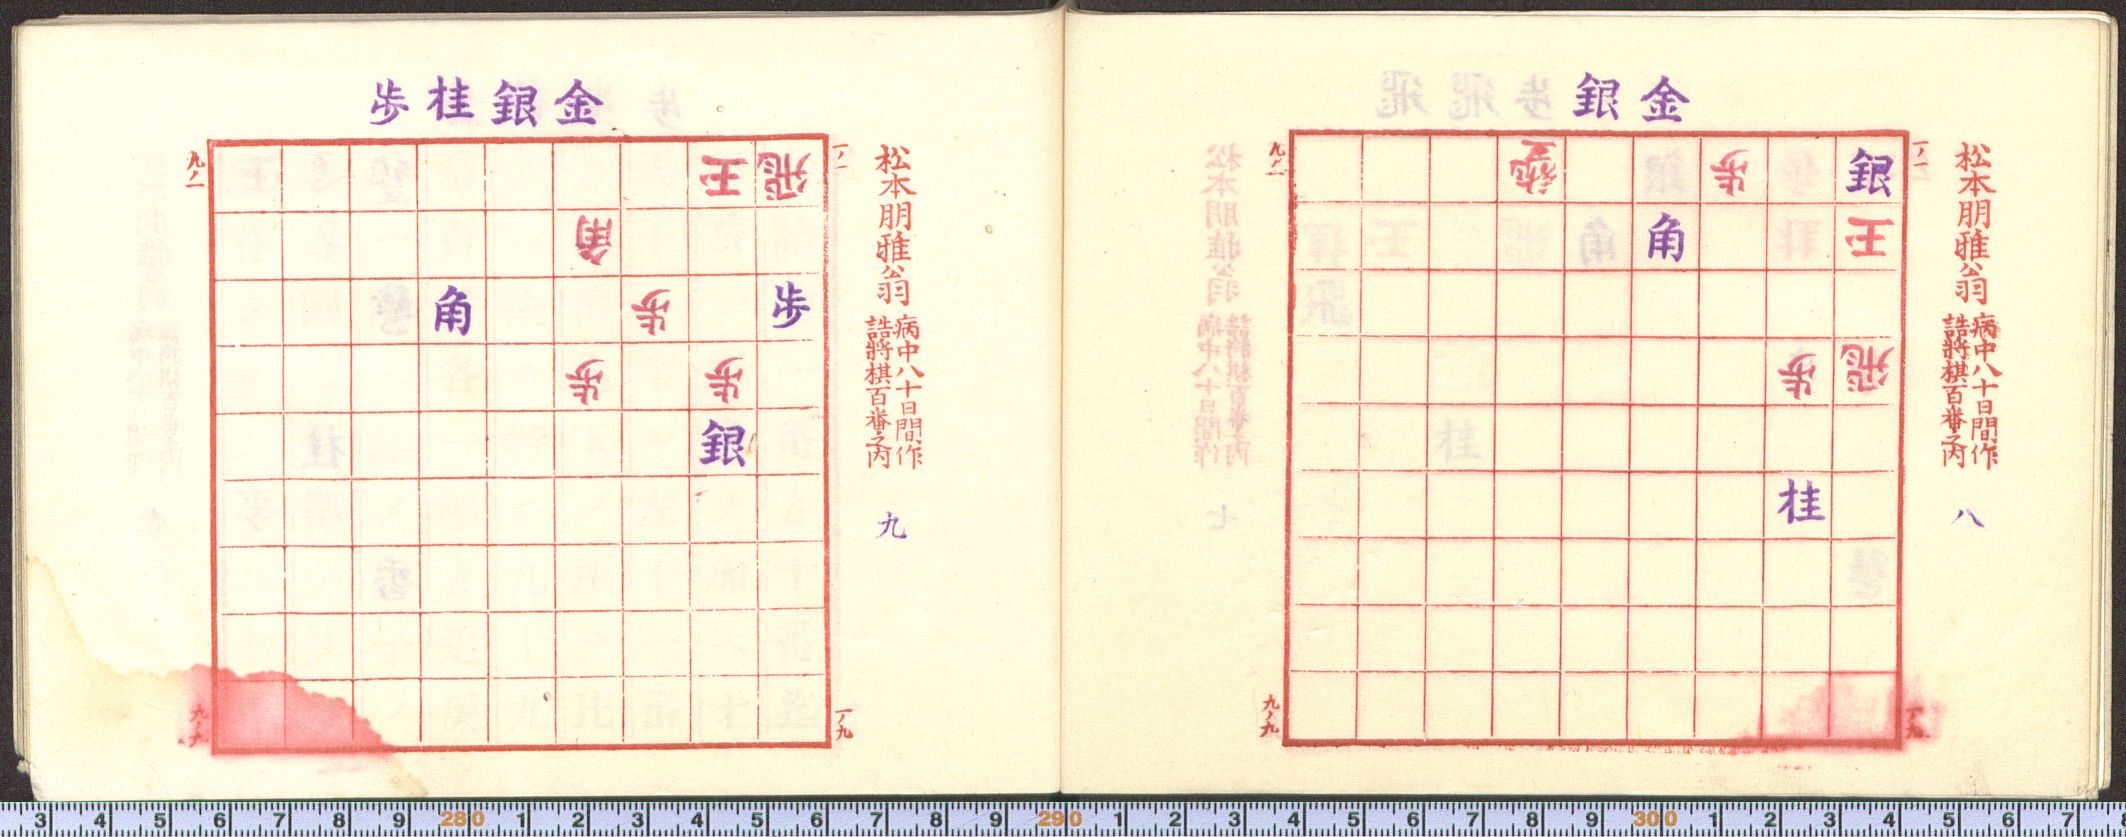 金銀
一ノ一
九ノ一
銀
歩
王
角
飛
歩
桂
一ノ九
九ノ九
松本朋雅翁
病中八十日間作
詰將棋百番之内
八
金銀桂歩
一ノ一
九ノ一
飛
王
角
歩
歩
角
歩
歩
銀
一ノ九
九ノ九
松本朋雅翁
病中八十日間作
詰將棋百番之内
九
3 4 5 6 7 8 9 280 1 2 3 4 5 6 7 8 9 290 1 2 3 4 5 6 7 8 9 300 1 2 3 4 5 6 7